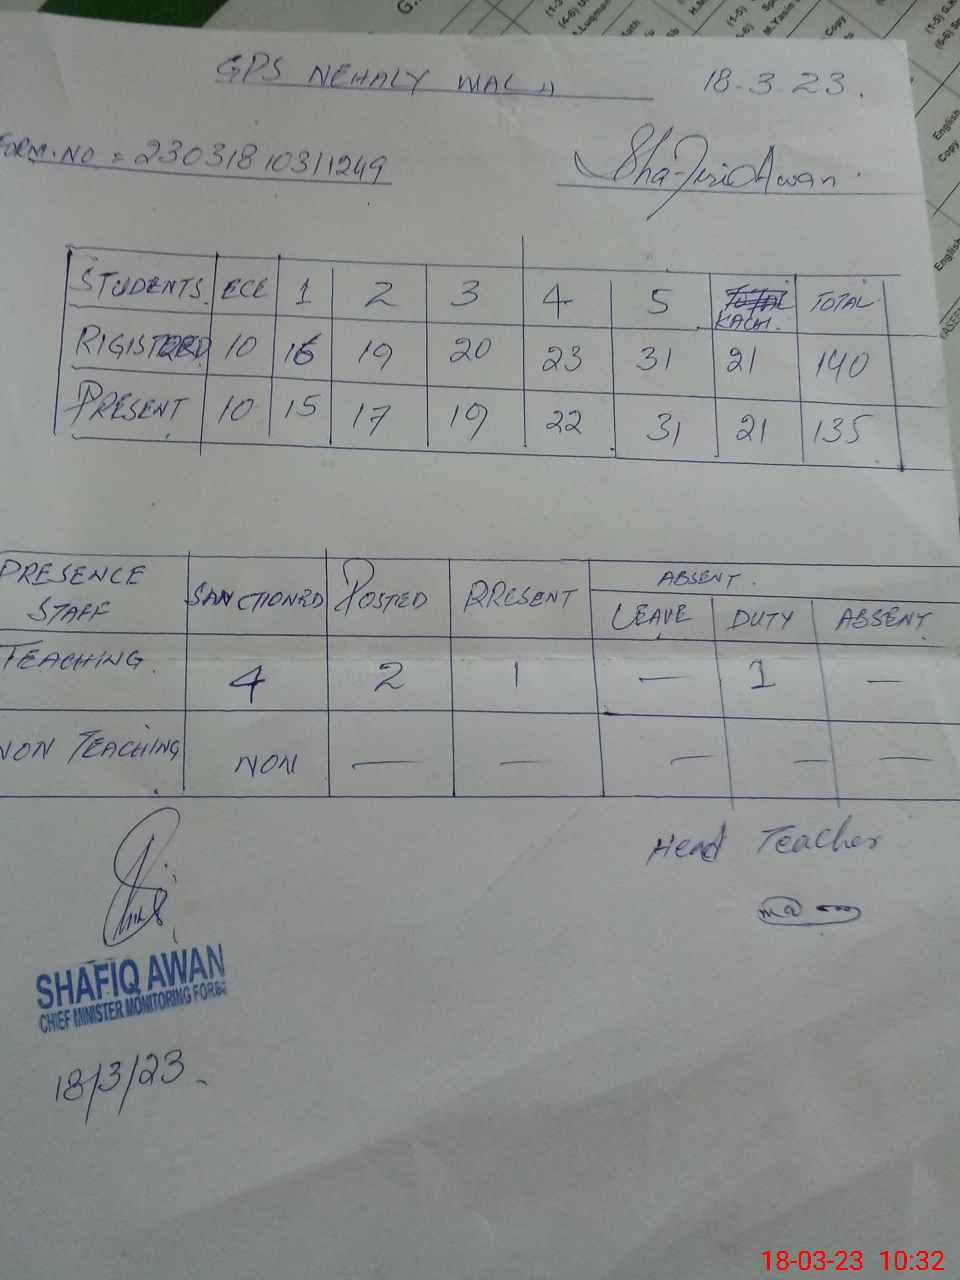 GPS NEHALY WALA 18-3-23.
FORM.NO = 23031810311249
Shafiq Awan
STUDENTS. ECE 1 2 3 4 5 KACHI. TOTAL
RIGISTERED 10 16 19 20 23 31 21 140
PRESENT 10 15 17 19 22 31 21 135
PRESENCE STAFF SANCTIONED POSTED PRESENT ABSENT.
LEAVE DUTY ABSENT
TEACHING. 4 2 1 — 1 —
NON TEACHING NON — — — — —
Head Teacher
SHAFIQ AWAN
CHIEF MINISTER MONITORING FORCE
18/3/23
18-03-23 10:32